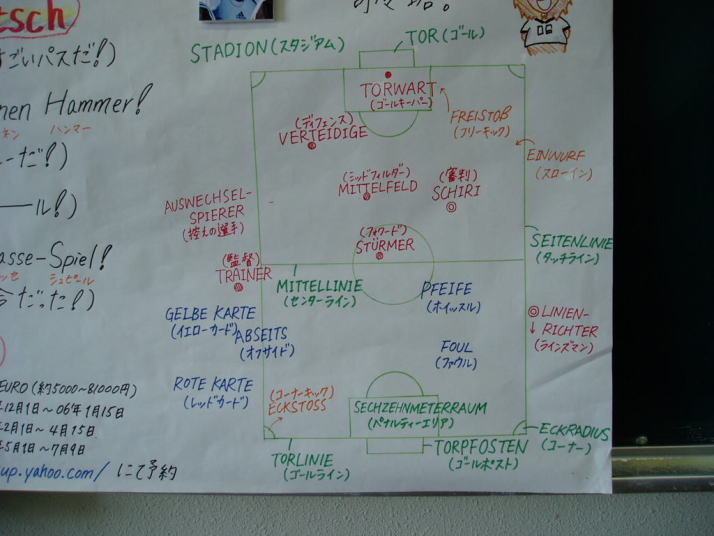 tsch
すごいパスだ!)
nen Hammer!
ハンマー
ーだ!)
ール!)
asse-Spiel!
シュピール
だった!)
EURO (約5000~81000円)
12月1日~06年1月15日
2月1日~4月15日
5月1日~7月9日
up.yahoo.com/ にて予約
STADION (スタジアム)
TOR (ゴール)
TORWART
(ゴールキーパー)
FREISTOß
(フリーキック)
(ディフェンス)
VERTEIDIGE
EINWURF
(スローイン)
(ミッドフィルダー)
MITTELFELD
(審判)
SCHIRI
AUSWECHSEL-
SPIERER
(控えの選手)
(フォワード)
STÜRMER
SEITENLINIE
(タッチライン)
(監督)
TRAINER
MITTELLINIE
(センターライン)
PFEIFE
(ホイッスル)
GELBE KARTE
(イエローカード)
ABSEITS
(オフサイド)
LINIEN-
RICHTER
(ラインズマン)
FOUL
(ファウル)
ROTE KARTE
(レッドカード)
(コーナーキック)
ECKSTOSS
SECHZEHNMETERRAUM
(ペナルティーエリア)
ECKRADIUS
(コーナー)
TORLINIE
(ゴールライン)
TORPFOSTEN
(ゴールポスト)